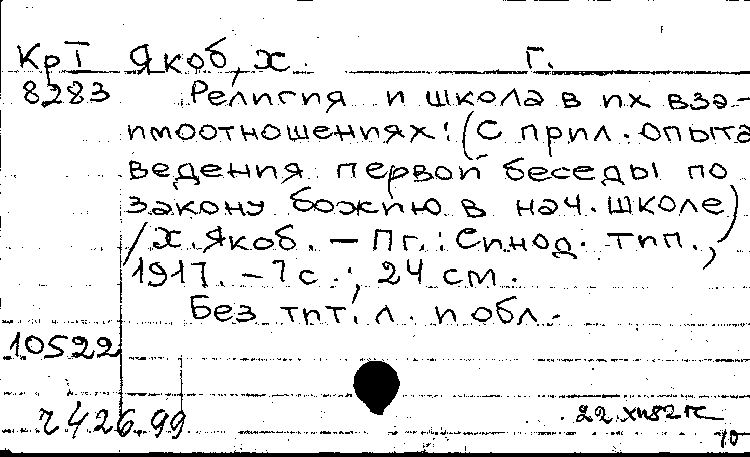 КрI Якоб, х. г.
8283 Религия и школа в их вза-
имоотношениях: (С прил. опыта
ведения первой беседы по
закону божию в нач. школе)
/Х. Якоб. — Пг.: Синод. тип.,
1917. — 7 с.; 24 см.
Без тит. л. и обл.
10522
г426.99
22.XII82г
10